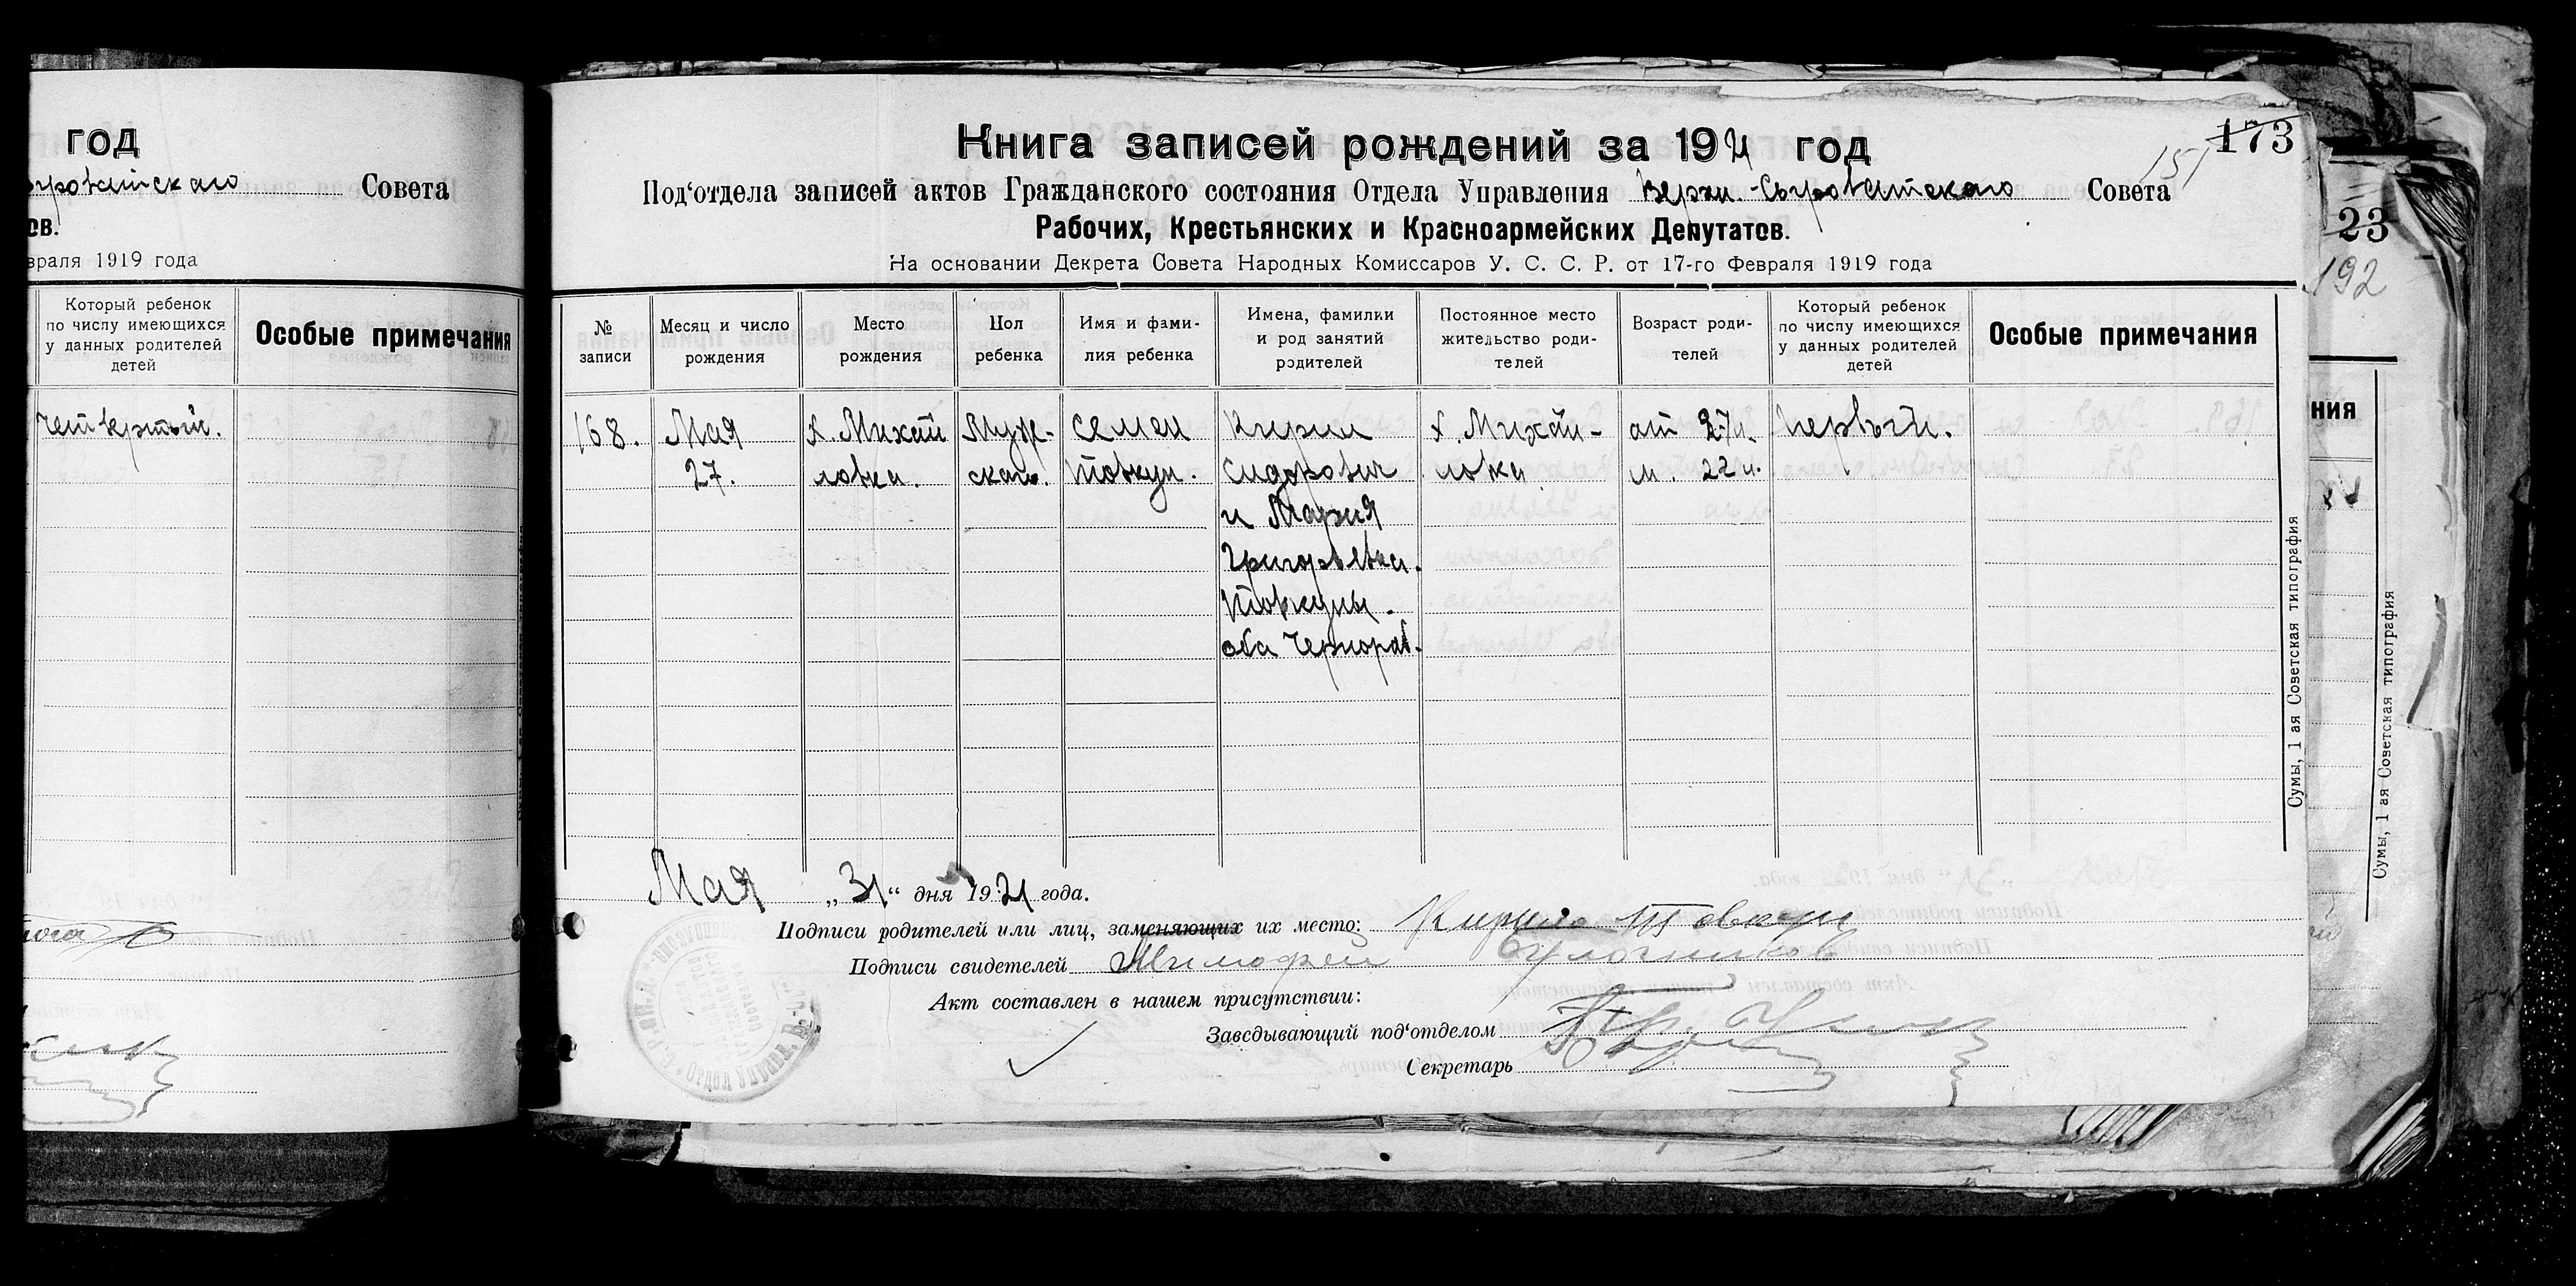 год
Совета
ов.
враля 1919 года
Который ребенок
по числу имеющихся
у данных родителей
детей
Особые примечания
четвертый.
Книга записей рождений за 1921 год
173
151
Под‘отдела записей актов Гражданского состояния Отдела Управления Верхн.-Сыроватского Совета
Рабочих, Крестьянских и Красноармейских Депутатов.
На основании Декрета Совета Народных Комиссаров У. С. С. Р. от 17-го Февраля 1919 года
№
записи
Месяц и число
рождения
Место
рождения
Пол
ребенка
Имя и фами-
лия ребенка
Имена, фамилии
и род занятий
родителей
Постоянное место
жительство роди-
телей
Возраст роди-
телей
Который ребенок
по числу имеющихся
у данных родителей
детей
Особые примечания
168.
Мая
27.
х. Михай
ловка.
Муж-
ского.
Семен
Товкун.
Кирил
Сидорович
и Мария
Григорьевна.
Товкуны.
оба Чернораб.
х. Михай-
ловка
от 27 л.
м. 22 л.
Первый.
Мая „31“ дня 1921 года.
Подписи родителей или лиц, заменяющих их место: Кирило Товкун
Подписи свидетелей Тимофей
Акт составлен в нашем присутствии:
Заведывающий под‘отделом
Секретарь
Сумы, 1 ая Советская типография
23
192
ния
Сумы, 1 ая Советская типография